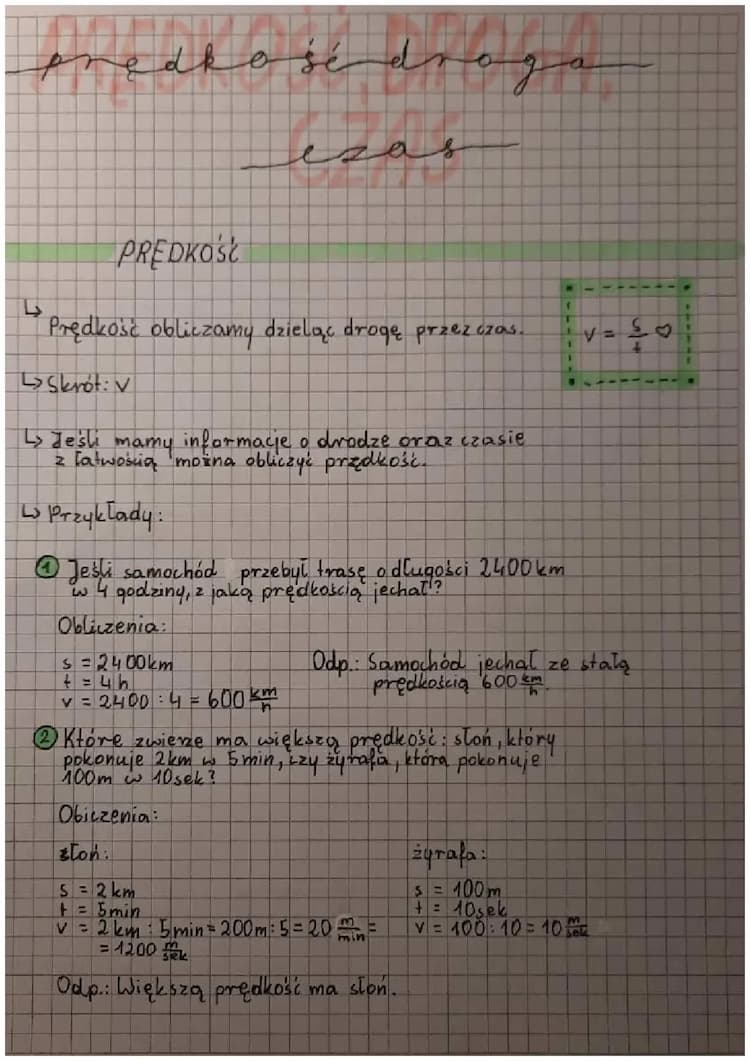 PRĘDKOŚĆ, DROGA,
prędkość droga
CZAS
czas
PRĘDKOŚĆ
↳ Prędkość obliczamy dzieląc drogę przez czas.
v = s/t ♡
↳ Skrót: v
↳ Jeśli mamy informacje o drodze oraz czasie
z łatwością można obliczyć prędkość.
↳ Przykłady:
① Jeśli samochód przebył trasę o długości 2400 km
w 4 godziny, z jaką prędkością jechał?
Obliczenia:
s = 2400km
t = 4h
v = 2400 : 4 = 600 km/h
Odp.: Samochód jechał ze stałą
prędkością 600 km/h.
② Które zwierze ma większą prędkość: słoń, który
pokonuje 2km w 5min, czy żyrafa, która pokonuje
100m w 10sek?
Obiczenia:
słoń:
s = 2 km
t = 5min
v = 2 km : 5 min = 200m : 5 = 20 m/min =
= 1200 m/sek
żyrafa:
s = 100m
t = 10sek
v = 100 : 10 = 10 m/sek
Odp.: Większą prędkość ma słoń.